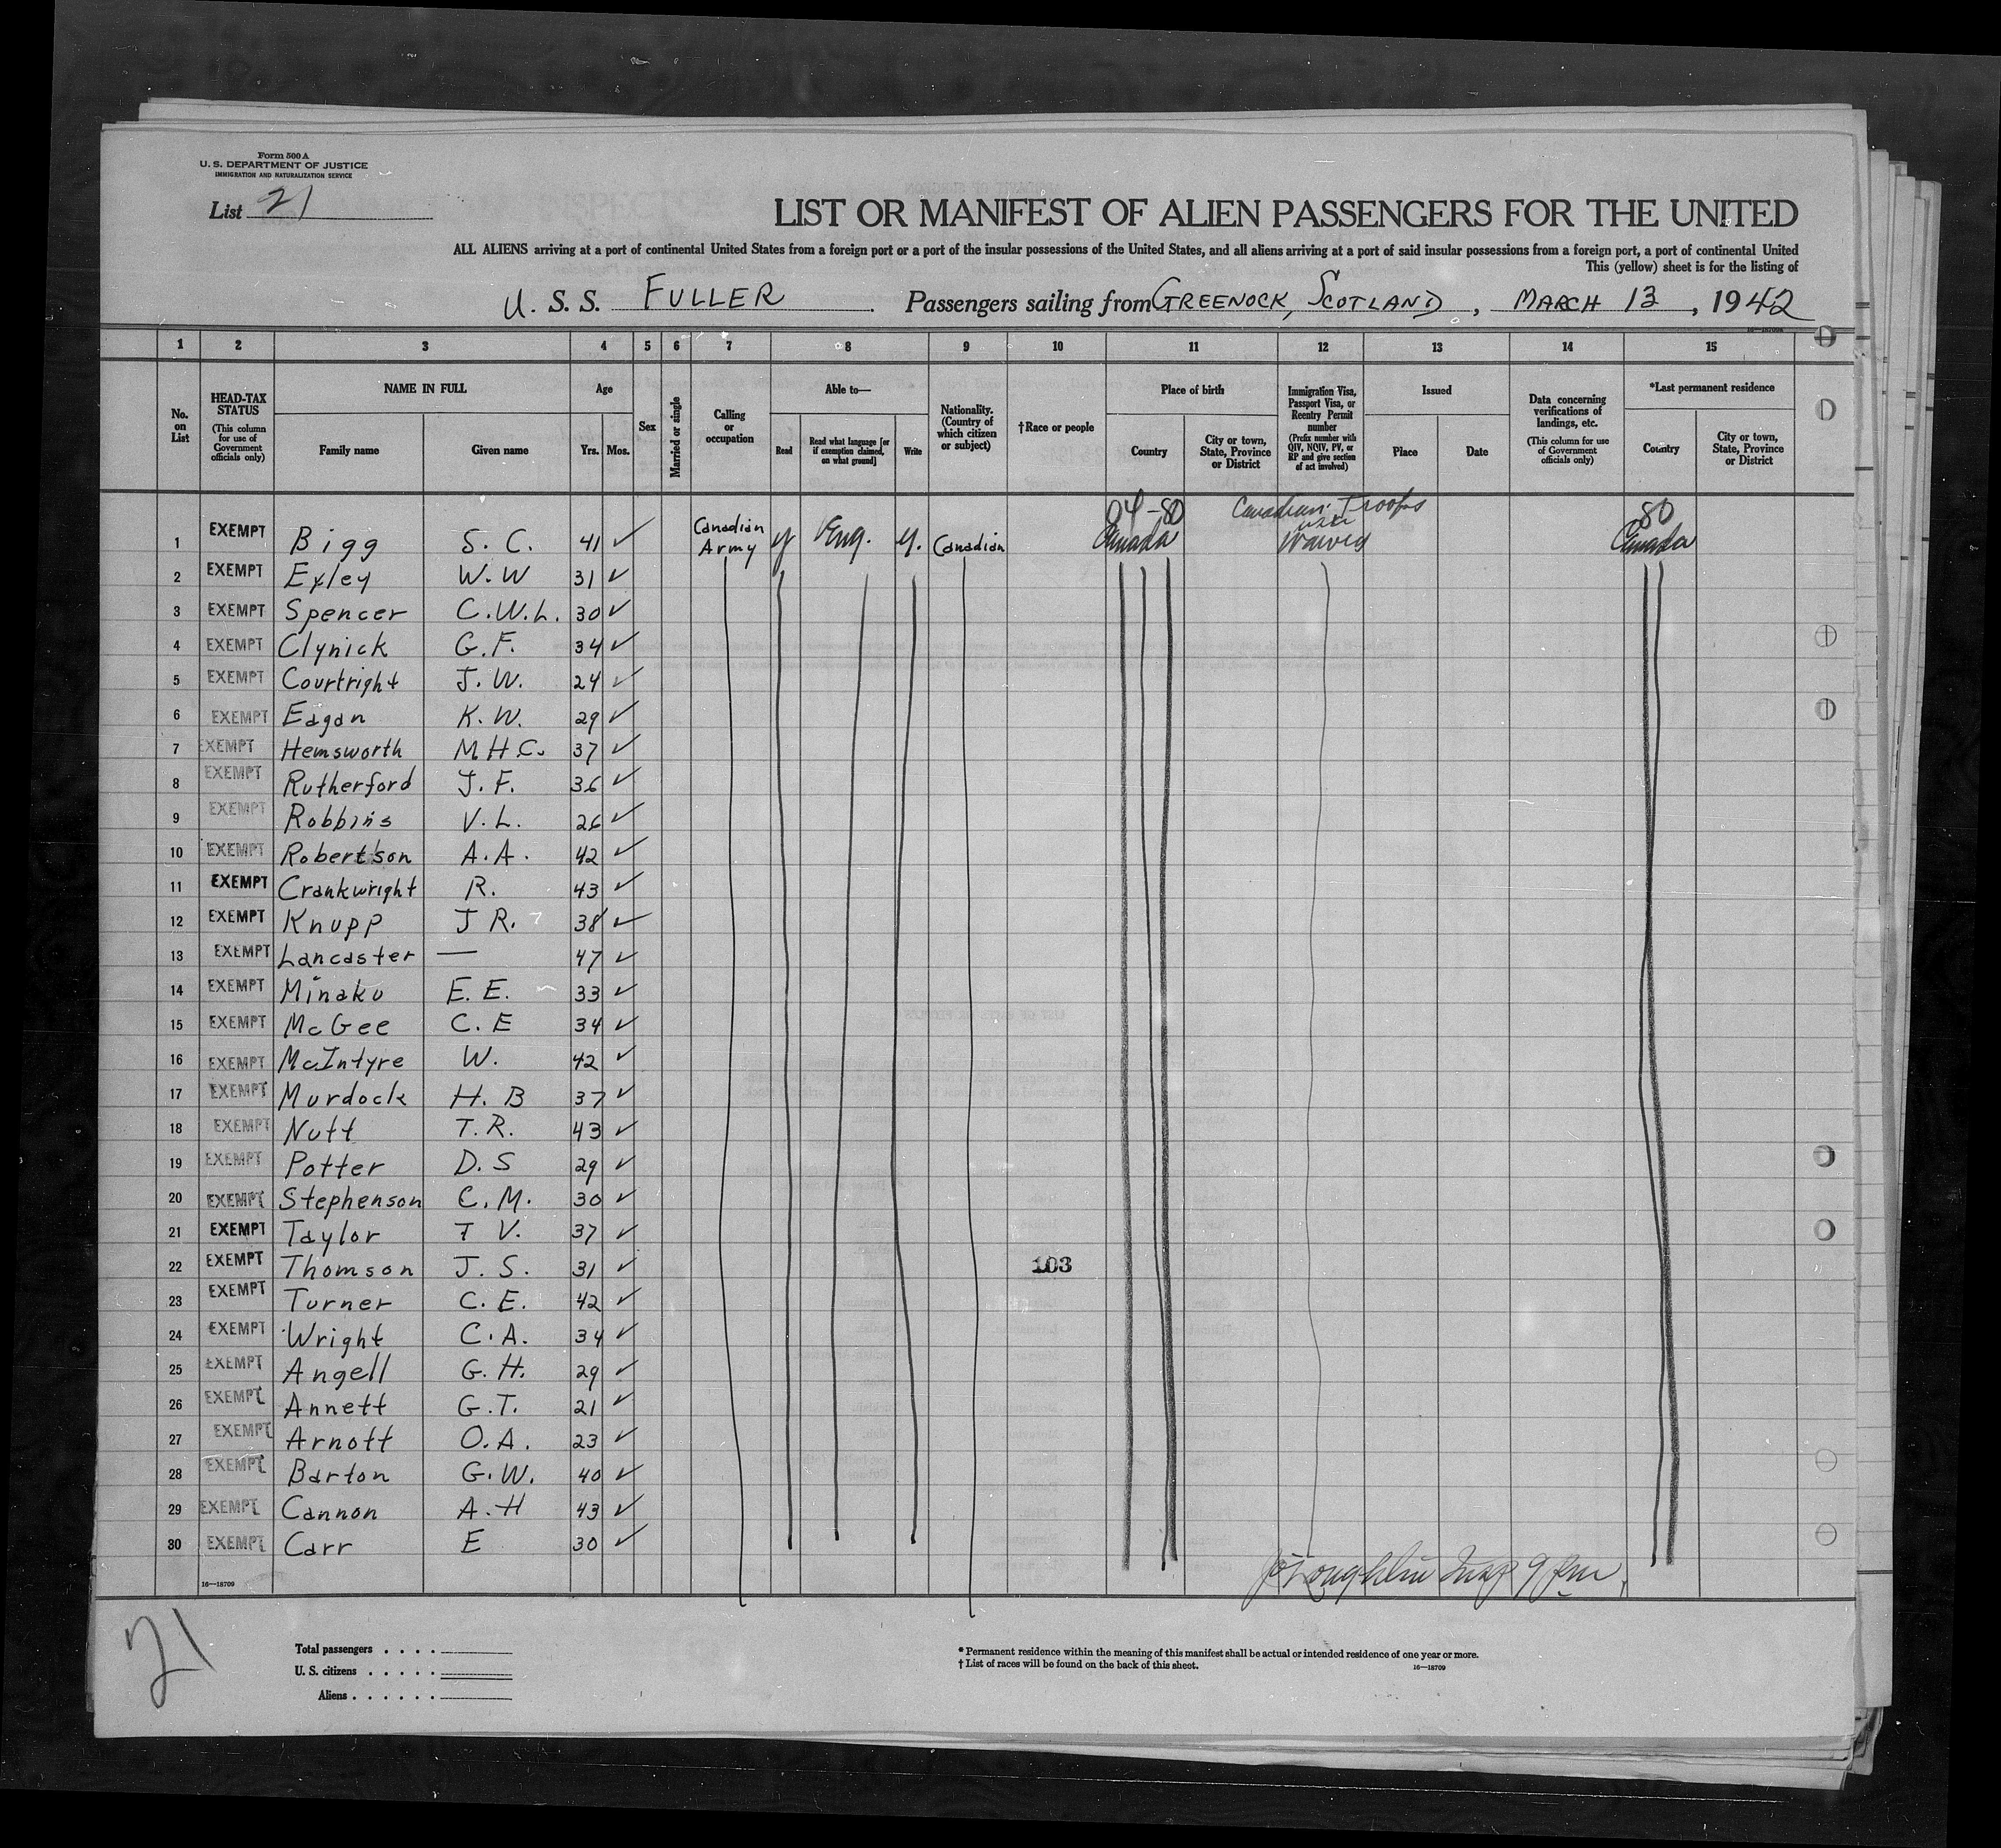 Form 500 A
U. S. DEPARTMENT OF JUSTICE
IMMIGRATION AND NATURALIZATION SERVICE
List 21
LIST OR MANIFEST OF ALIEN PASSENGERS FOR THE UNITED
ALL ALIENS arriving at a port of continental United States from a foreign port or a port of the insular possessions of the United States, and all aliens arriving at a port of said insular possessions from a foreign port, a port of continental United
This (yellow) sheet is for the listing of
U. S. S. FULLER. Passengers sailing from GREENOCK, SCOTLAND, MARCH 13, 1942
1 2 3 4 5 6 7 8 9 10 11 12 13 14 15
No. on List
HEAD-TAX STATUS (This column for use of Government officials only)
NAME IN FULL
Family name Given name
Age
Yrs. Mos.
Sex
Married or single
Calling or occupation
Able to—
Read Read what language [or if exemption claimed, on what ground] Write
Nationality. (Country of which citizen or subject)
†Race or people
Place of birth
Country City or town, State, Province or District
Immigration Visa, Passport Visa, or Reentry Permit number (Prefix number with QIV, NQIV, PV, or RP and give section of act involved)
Issued
Place Date
Data concerning verifications of landings, etc. (This column for use of Government officials only)
*Last permanent residence
Country City or town, State, Province or District
04-80 Canadian Troops 80
1 EXEMPT Bigg S. C. 41 Canadian Army y Eng. y. Canadian Canada visa waived Canada
2 EXEMPT Exley W. W 31
3 EXEMPT Spencer C. W. L. 30
4 EXEMPT Clynick G. F. 34
5 EXEMPT Courtright J. W. 24
6 EXEMPT Eagan K. W. 29
7 EXEMPT Hemsworth M H C. 37
8 EXEMPT Rutherford J. F. 36
9 EXEMPT Robbins V. L. 26
10 EXEMPT Robertson A. A. 42
11 EXEMPT Crankwright R. 43
12 EXEMPT Knupp J R. 38
13 EXEMPT Lancaster — 47
14 EXEMPT Minaku E. E. 33
15 EXEMPT McGee C. E 34
16 EXEMPT McIntyre W. 42
17 EXEMPT Murdock H. B 37
18 EXEMPT Nutt T. R. 43
19 EXEMPT Potter D. S 29
20 EXEMPT Stephenson C. M. 30
21 EXEMPT Taylor F V. 37
22 EXEMPT Thomson J. S. 31 103
23 EXEMPT Turner C. E. 42
24 EXEMPT Wright C. A. 34
25 EXEMPT Angell G. H. 29
26 EXEMPT Annett G. T. 21
27 EXEMPT Arnott O. A. 23
28 EXEMPT Barton G. W. 40
29 EXEMPT Cannon A. H 43
30 EXEMPT Carr E 30
16—18709
21
Total passengers . . . .
U. S. citizens . . . . .
Aliens . . . . . .
* Permanent residence within the meaning of this manifest shall be actual or intended residence of one year or more.
† List of races will be found on the back of this sheet. 16—18709